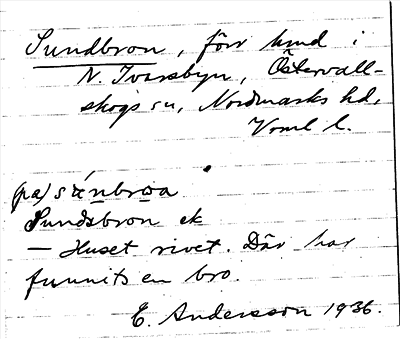 Sundbron, förr hmd i
N. Ivarsbyn, Östervall-
skogs sn, Nordmarks hd,
Verml l.
(pa) súnbroa
Sundsbron ek
— Huset rivet. Där har
funnits en bro.
E. Andersson 1936.